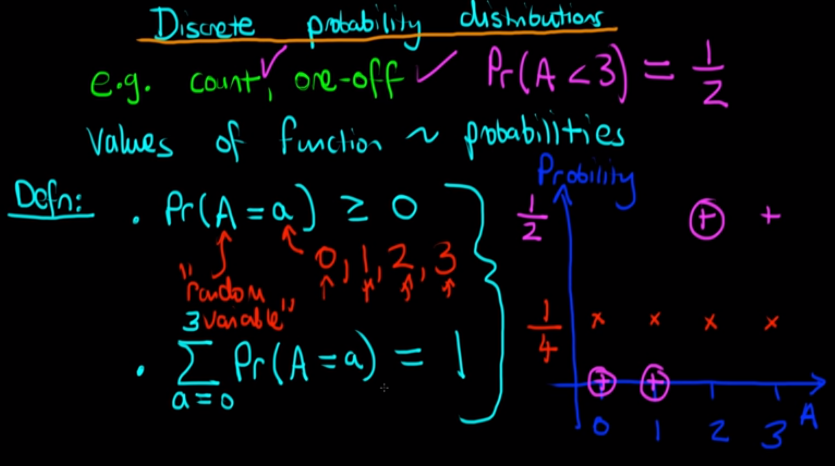 Discrete probability distributions
e.g. count, one-off Pr(A<3) = 1/2
Values of function ~ probabilities
Defn: . Pr(A = a) ≥ 0
0, 1, 2, 3
"random variable"
. 3 ∑ a=0 Pr(A = a) = 1
Probility
1/2
1/4
0 1 2 3 A